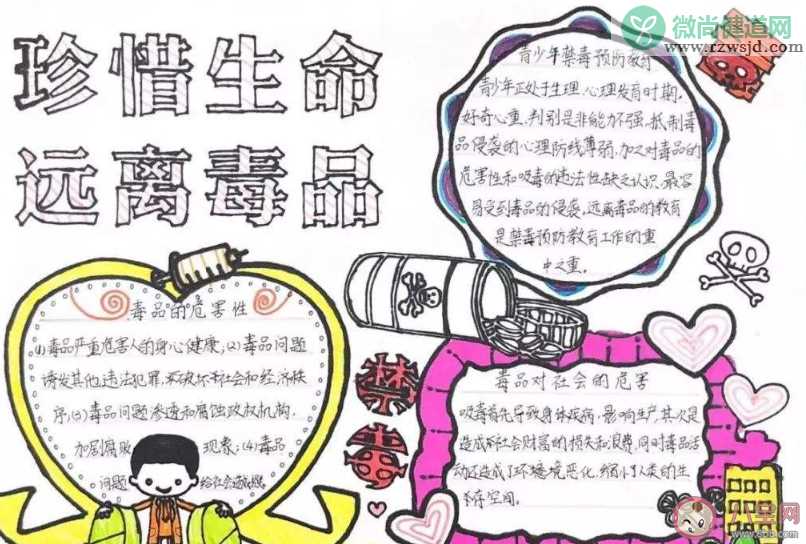 珍惜生命
远离毒品
微尚健道网
www.rzwsjd.com
青少年禁毒预防教育
青少年正处于生理、心理发育时期,
好奇心重,判别是非能力不强,抵制毒
品侵袭的心理防线薄弱,加之对毒品的
危害性和吸毒的违法性缺乏认识,最容
易受到毒品的侵袭,远离毒品的教育
是禁毒预防教育工作的重
中之重。
毒品的危害性
(1)毒品严重危害人的身心健康;(2)毒品问题
诱发其他违法犯罪,破坏正常社会和经济秩
序;(3)毒品问题渗透和腐蚀政权机构,
加剧腐败 现象;(4)毒品
问题 给社会造成
禁毒
毒品对社会的危害
吸毒首先导致身体疾病,影响生产,其次是
造成社会财富的损失和浪费,同时毒品活
动还造成了环境恶化,缩小了人类的生
存空间。
八号网